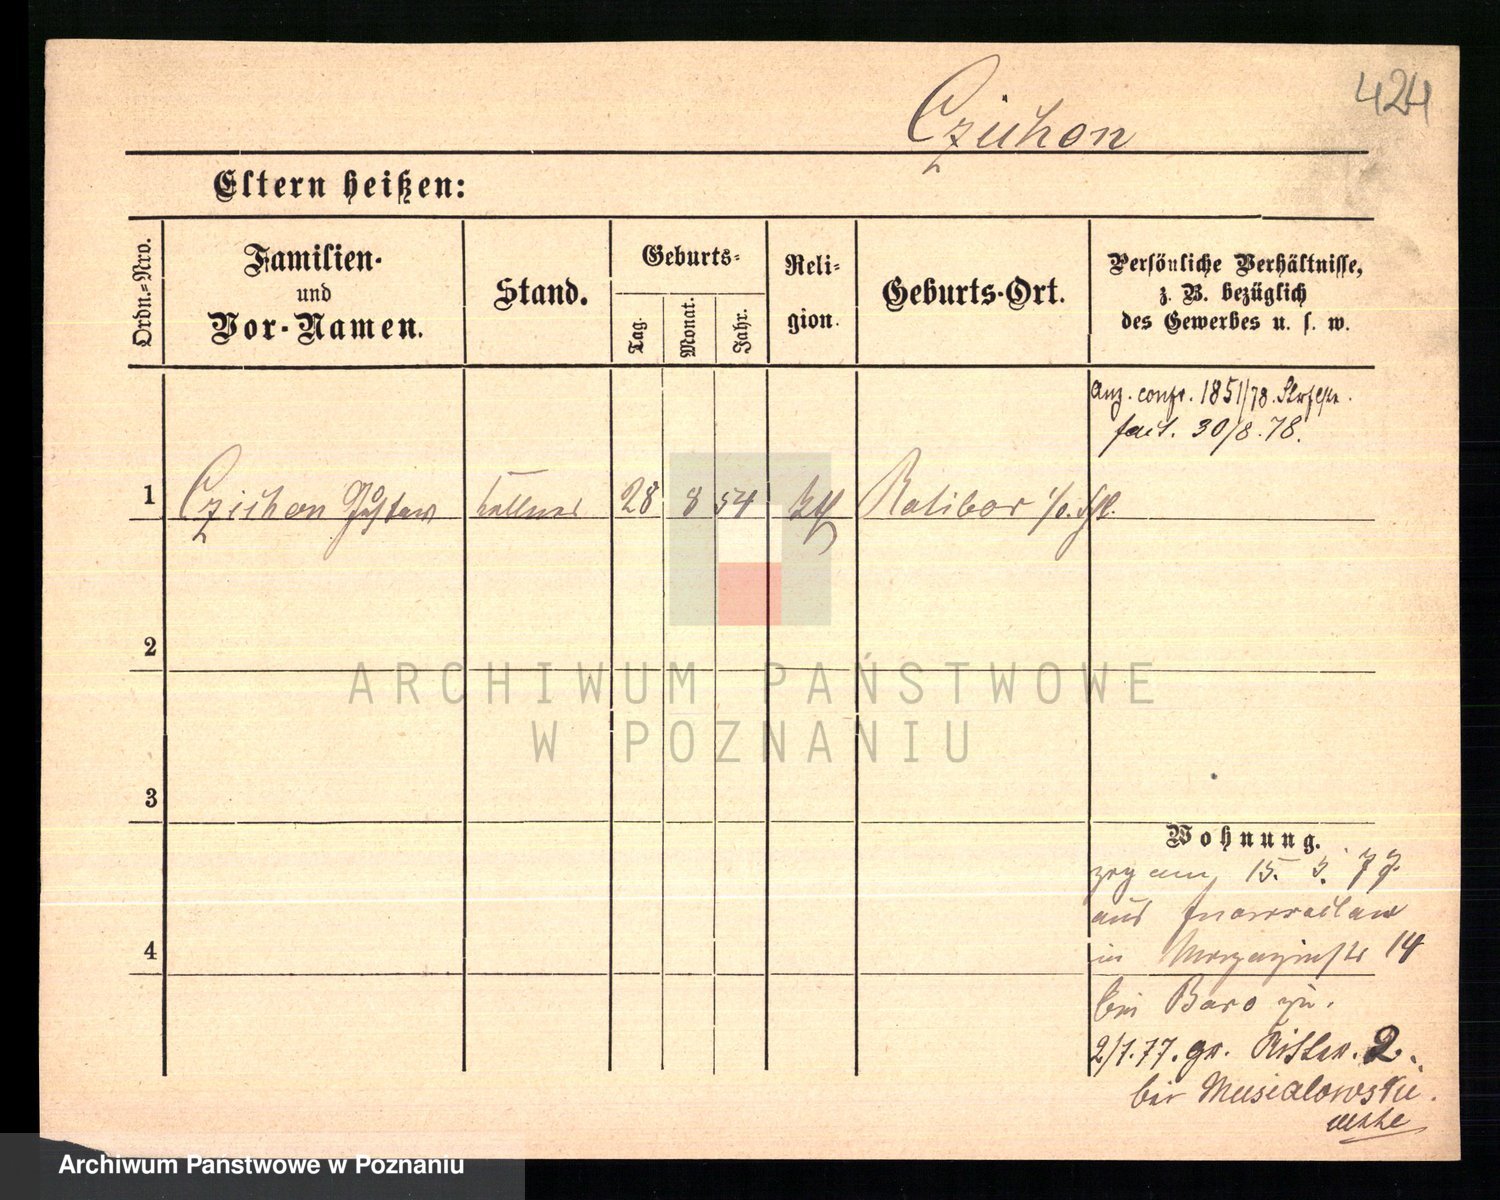 424
Czichon
Eltern heißen:
Ordn.-Nro.
Familien-
und
Vor-Namen.
Stand.
Geburts-
Tag.
Monat.
Jahr.
Reli-
gion.
Geburts-Ort.
Persönliche Verhältnisse,
z. B. bezüglich
des Gewerbes u. s. w.
Anz. 1851/78.
30/8.78.
1 Czichon Gustav Kellner 28 8 54 Ratibor
2
3
4
Wohnung.
zog am 15. 3. 77
aus Inowraclaw
in Magazinstr 14
bei Baro zu.
2/7.77. gr. Ritter. 2.
bei Musialowski.
ARCHIWUM PAŃSTWOWE
W POZNANIU
Archiwum Państwowe w Poznaniu